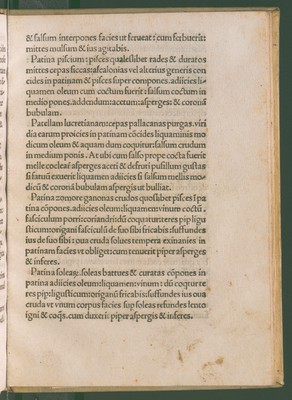 & salsum interpones facies ut ferueat: cum ferbuerit:
mittes mulsum & ius agitabis.
Patina piscium: pisces qualeslibet rades & curatos
mittes cepas siccas: ascalonias uel alterius generis con
cides in patinam & pisces super compones. adiicies li
quamen oleum cum coctum fuerit: salsum coctum in
medio pones. addendum: acetum: asperges: & coronã
bubulam.
Patellam lucretianam: cepas pallacanas purgas. uiri
dia earum proicies in patinam cõcides liquaminis mo
dicum oleum & aquam dum coquitur: salsum crudum
in medium ponis. At ubi cum salso prope cocta fuerit
melle coclear asperges aceti & defruti pusillum gustas
si fatuũ exuerit liquamen adiicies si salsum mellis mo
dicũ & coronã bubulam aspergis ut bulliat.
Patina zomore ganonas crudos quoslibet pisces ĩ pa
tina cõpones. adiicies oleum: liquamen: uinum coctũ.
fasciculum porri: coriandri: dũ coquatur: teres pip ligu
sticum: origani fasciculũ de suo sibi fricabis: suffundes
ius de suo sibi: oua cruda solues tempera exinanies in
patinam facies ut obliget: cum tenuerit piper asperges
& inferes.
Patina soleaꝝ. soleas battues & curatas cõpones in
patina adiicies oleum: liquamen: uinum: dũ coqtur te
res pip: ligusticum: origanũ fricabis: suffundes ius oua
cruda ut unum corpus facies sup soleas refundes lento
igni & coq̃s. cum duxerit piper aspergis & inferes.